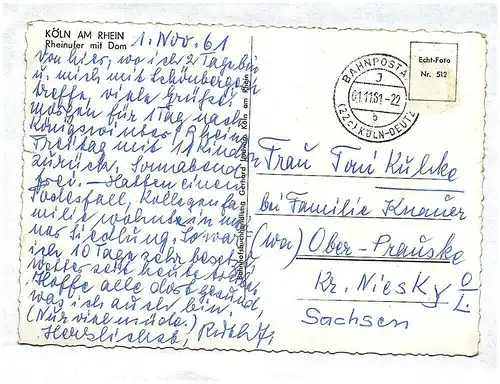 KÖLN AM RHEIN
Rheinufer mit Dom
1. Nov. 61
Von hier, wo ich 2 Tage bin
u. mich mit Schönbergen
treffe, viele Grüße!
morgen für 1 Tag nach
Königswinter Rhein.
Freitag mit 12 Kinder
zurück. Sonnabend
frei. – Hatten einen
Todesfall, Kollegenfa-
milie wohnte in un-
rer Siedlung. So war
ich 10 Tage sehr besetzt
Wetter seit heute
Hoffe alle dort gesund,
was ich auch bin.
(Nur viel müde.)
Herzlichst,
Bahnhofsbuchhandlung Gerhard Ludwig Köln am Rhein
BAHNPOSTA
J
01.11.61-22
b
(22c) KÖLN-DEUTZ
Echt-Foto
Nr. 512
Frau Toni Kulcke
bei Familie Knauer
(wa) Ober-Prauske
Kr. Niesky O/L.
Sachsen